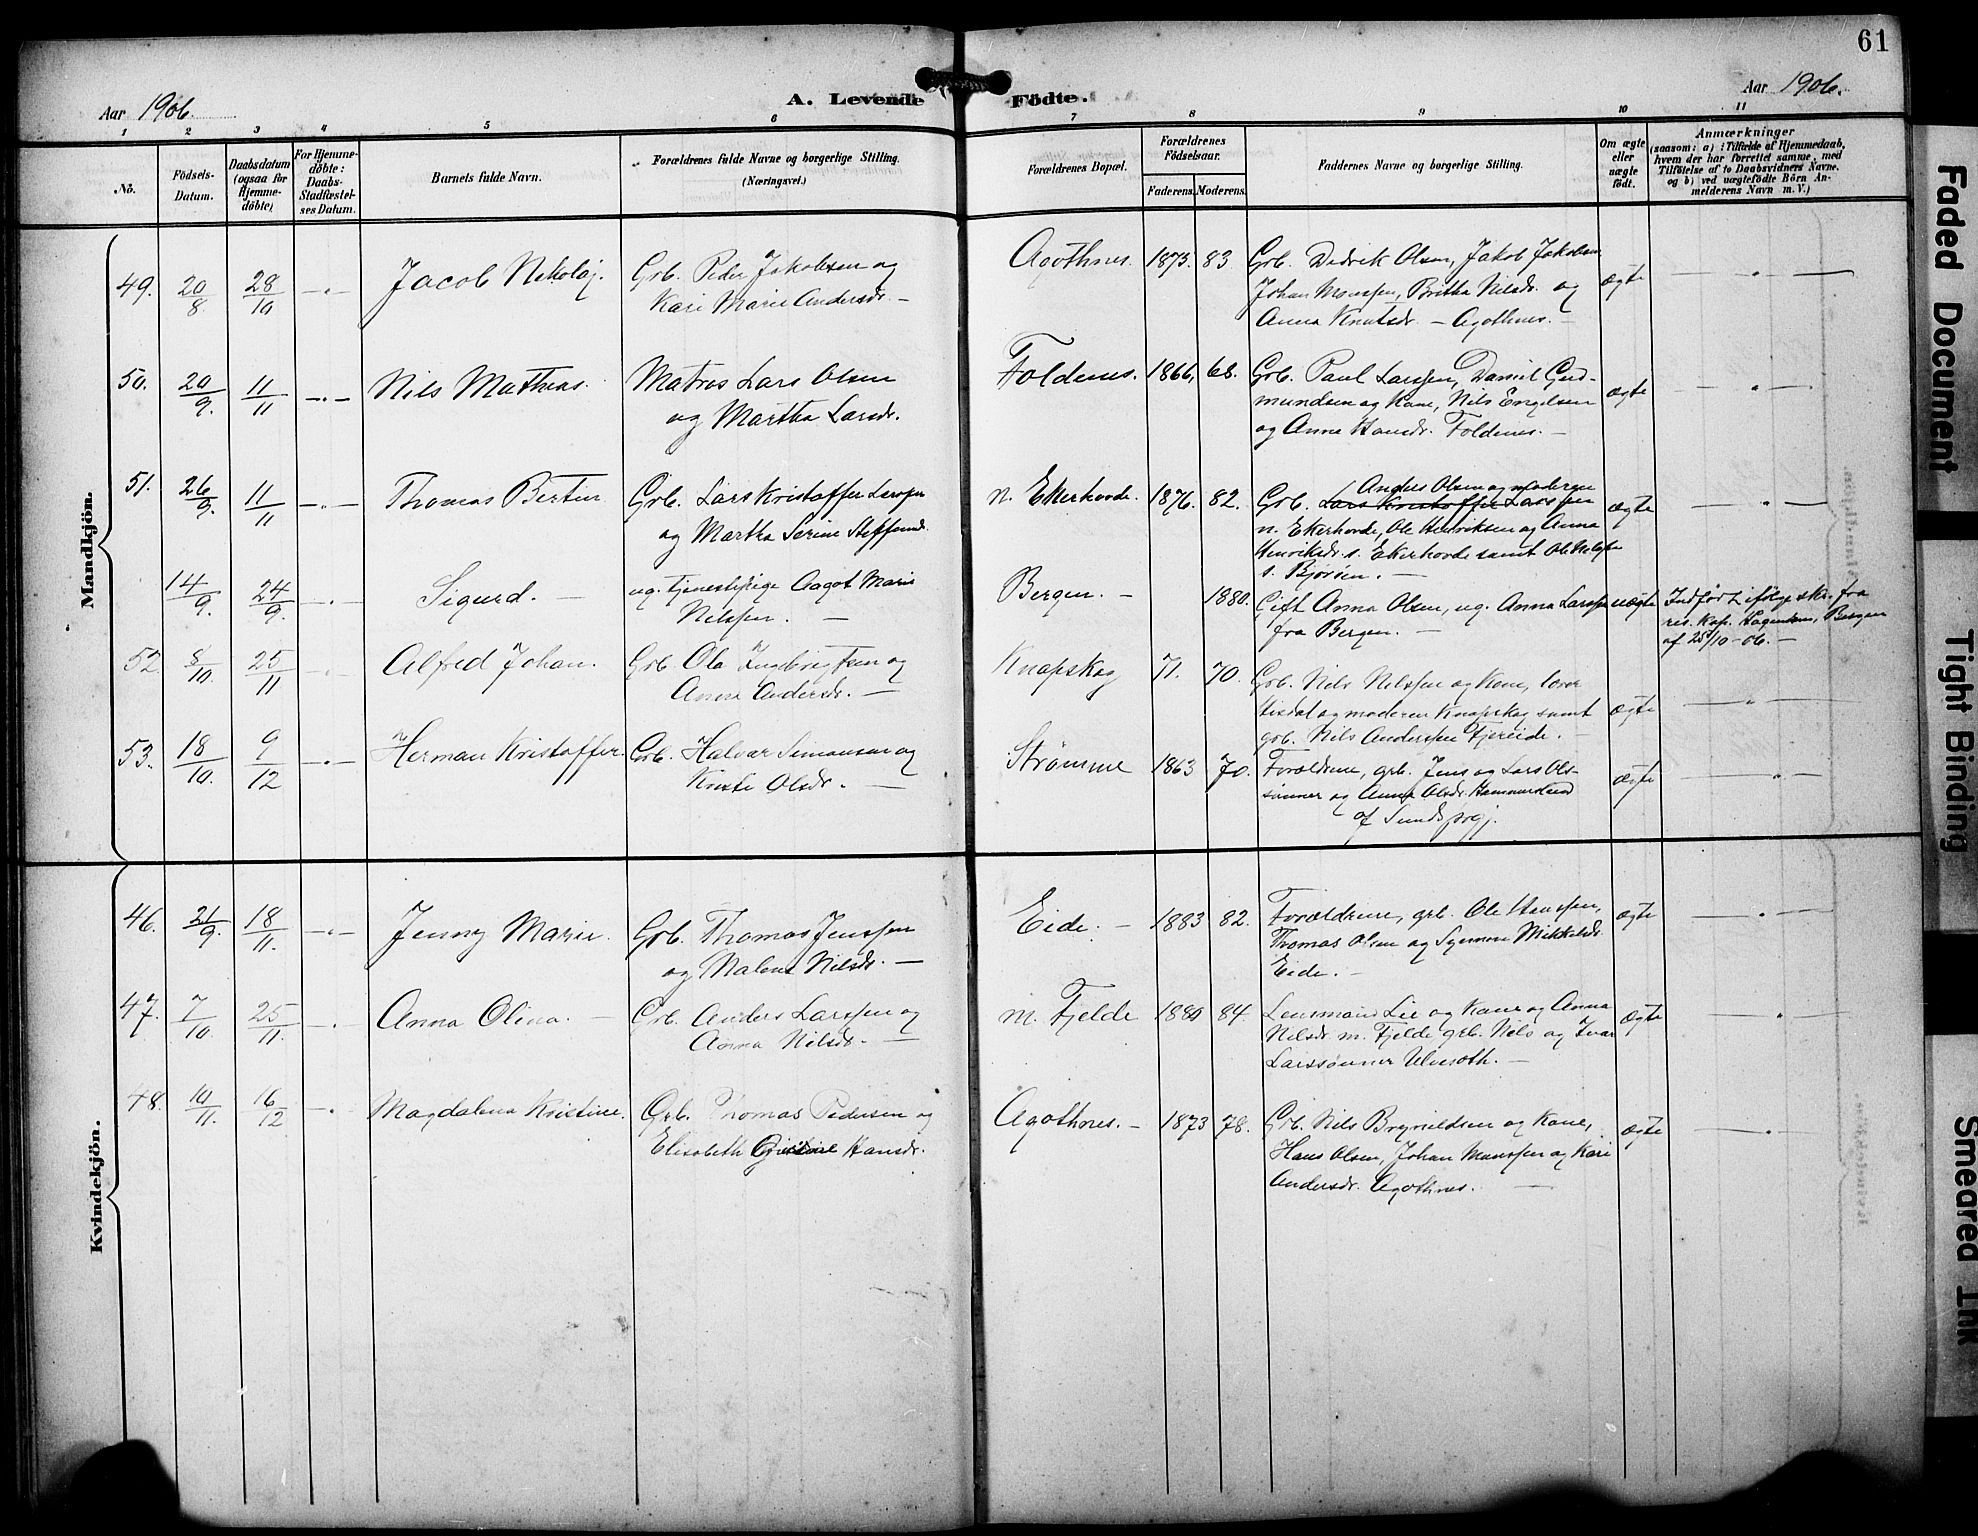 61
Aar 1906.
A. Levende Födte.
Aar 1906.
1 2 3 4 5 6 7 8 9 10 11
No.
Födsels-
Datum.
Daabsdatum
(ogsaa for
Hjemme-
døbte)
For Hjemme-
døbte:
Daabs-
Stadfæstel-
ses Datum.
Barnets fulde Navn.
Forældrenes fulde Navne og borgerlige Stilling.
(Næringsvei.)
Forældrenes Bopæl.
Forældrenes
Födselsaar.
Faderens. Moderens.
Faddernes Navne og borgerlige Stilling.
Om ægte
eller
uægte
født.
Anmærkninger
(saasom: a) : Tilfælde af Hjemmedaab,
hvem der har forrettet samme, med
Tilføielse af to Daabsvidners Navne,
og b) ved uægtefødte Børn An-
melderens Navn m. V.)
Mandkjön.
49. 20/8. 28/10 Jacob Nikolaj.
Grb. Peder Jakobsen og
Kari Marie Andersdr. —
Agothnes. 1873. 83
Grb. Didrik Olsen, Jakob Jakobsen,
Johan Monssen, Britha Nilsdr. og
Anna Knutsdr. — Agothnes. —
ægte
50. 20/9. 11/11 Nils Mathias.
Matros Lars Olsen
og Martha Larsdr.
Foldenes. 1866, 68.
Grb. Paul Larssen, Daniel Gud-
mundsen og Kone, Nils Engelsen
og Anna Hansdr. Foldenes. —
ægte
51. 26/9. 11/11 Thomas Bertin
Grb. Lars Kristoffer Larssen
og Martha Serine Steffensd.
n. Ekerhovde. 1876. 82.
Anders Olsen og moderen
Grb. Lars Kristoffer Larssen
n. Ekerhovde, Ole Henriksen og Anna
Henriksdr. s. Ekerhovde samt Ole
s. Bjorøen. —
ægte
14/9. 24/9. Sigurd. —
ug. Tjenestepige Aagot Marie
Nilssen. —
Bergen. — 1880.
Gift Anna Olsen, ug. Anna Larssen
fra Bergen. —
uægte
Indført ifølge skr. fra
res. Kap. Bergen
af 25/10-06. —
52. 8/10. 25/11 Alfred Johan.
Grb. Ola Ingebrigtsen og
Anna Andersdr. —
Knapskog 71. 70.
Grb. Nils Nilssen og Kone, lærer
Tisdal og moderen Knapskog samt
grb. Nils Anderssen Fjereide. —
ægte
53. 18/10. 9/12 Herman Kristoffer.
Grb. Halvar Simonsen og
Kriste Olsdr. —
Strømme 1863 70.
Forældrene, grb. Jens og Lars Ols-
sønner og Anna Olsdr. Hammersland
af Sunds prgj.
ægte
Kvindekjön.
46. 21/9. 18/11. Jenny Marie.
Grb. Thomas Jenssen
og Malene Nilsdr. —
Eide. — 1883 82.
Forældrene, grb. Ole Hanssen,
Thomas Olsen og Synnøve Mikkelsdr.
Eide. —
ægte
47. 7/10. 25/11. Anna Olina. —
Grb. Anders Larssen og
Anna Nilsdr. —
m. Fjelde 1880 84.
Lensmand Lie og Kone og Anna
Nilsdr. m. Fjelde grb. Nils og Ivar
Larssønner Ulvesoth. —
ægte
48. 10/11. 16/12 Magdalena Kristine.
Grb. Thomas Pedersen og
Elisabeth Hansdr.
Agothnes. — 1873 78.
Grb. Nils Brynildsen og Kone,
Hans Olsen, Johan Monssen og Kari
Andersdr. Agothnes. —
ægte
Faded Document
Tight Binding
Smeared Ink